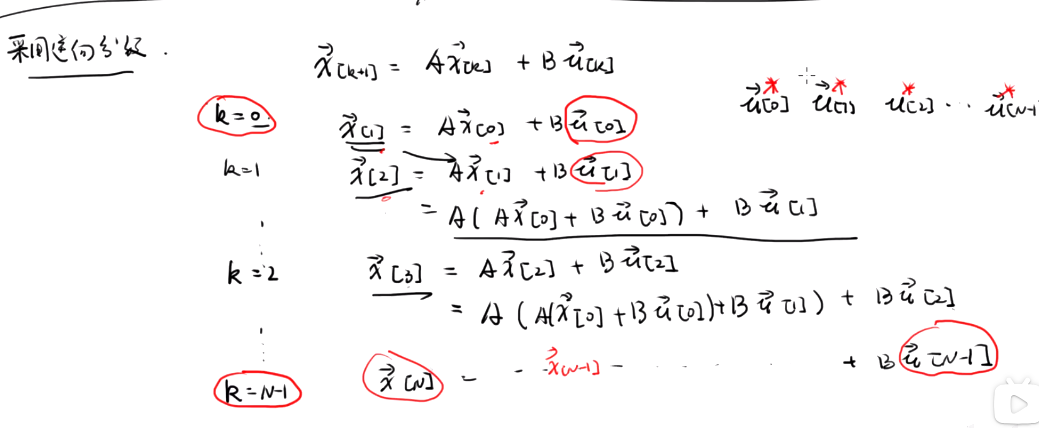 采用逆向分级.
x⃗[k+1] = Ax⃗[k] + Bu⃗[k]
u⃗[0]* u⃗[1]* u[2]* ... u⃗[N-1]*
k=0 x⃗[1] = Ax⃗[0] + Bu⃗[0]
k=1 x⃗[2] = Ax⃗[1] + Bu⃗[1]
= A(Ax⃗[0] + Bu⃗[0]) + Bu⃗[1]
k=2 x⃗[3] = Ax⃗[2] + Bu⃗[2]
= A(A(x⃗[0] + Bu⃗[0]) + Bu⃗[1]) + Bu⃗[2]
k=N-1 x⃗[N] = - - x⃗[N-1] - - . . . + Bu⃗[N-1]